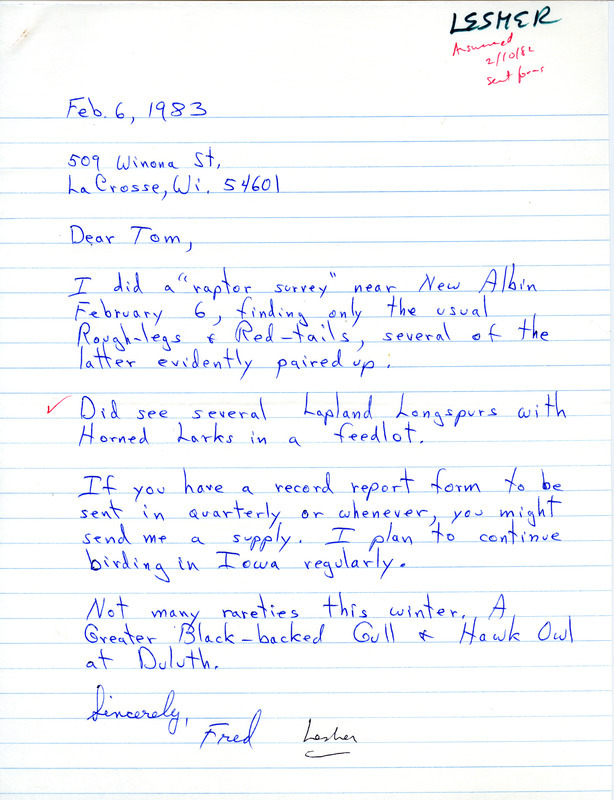 LESHER
Answered
2/10/82
sent forms
Feb. 6, 1983
509 Winona St.
LaCrosse, Wi. 54601
Dear Tom,
I did a "raptor survey" near New Albin
February 6, finding only the usual
Rough-legs & Red-tails, several of the
latter evidently paired up.
Did see several Lapland Longspurs with
Horned Larks in a feedlot.
If you have a record report form to be
sent in quarterly or whenever, you might
send me a supply. I plan to continue
birding in Iowa regularly.
Not many rareties this winter. A
Greater Black-backed Gull & Hawk Owl
at Duluth.
Sincerely,
Fred Lesher